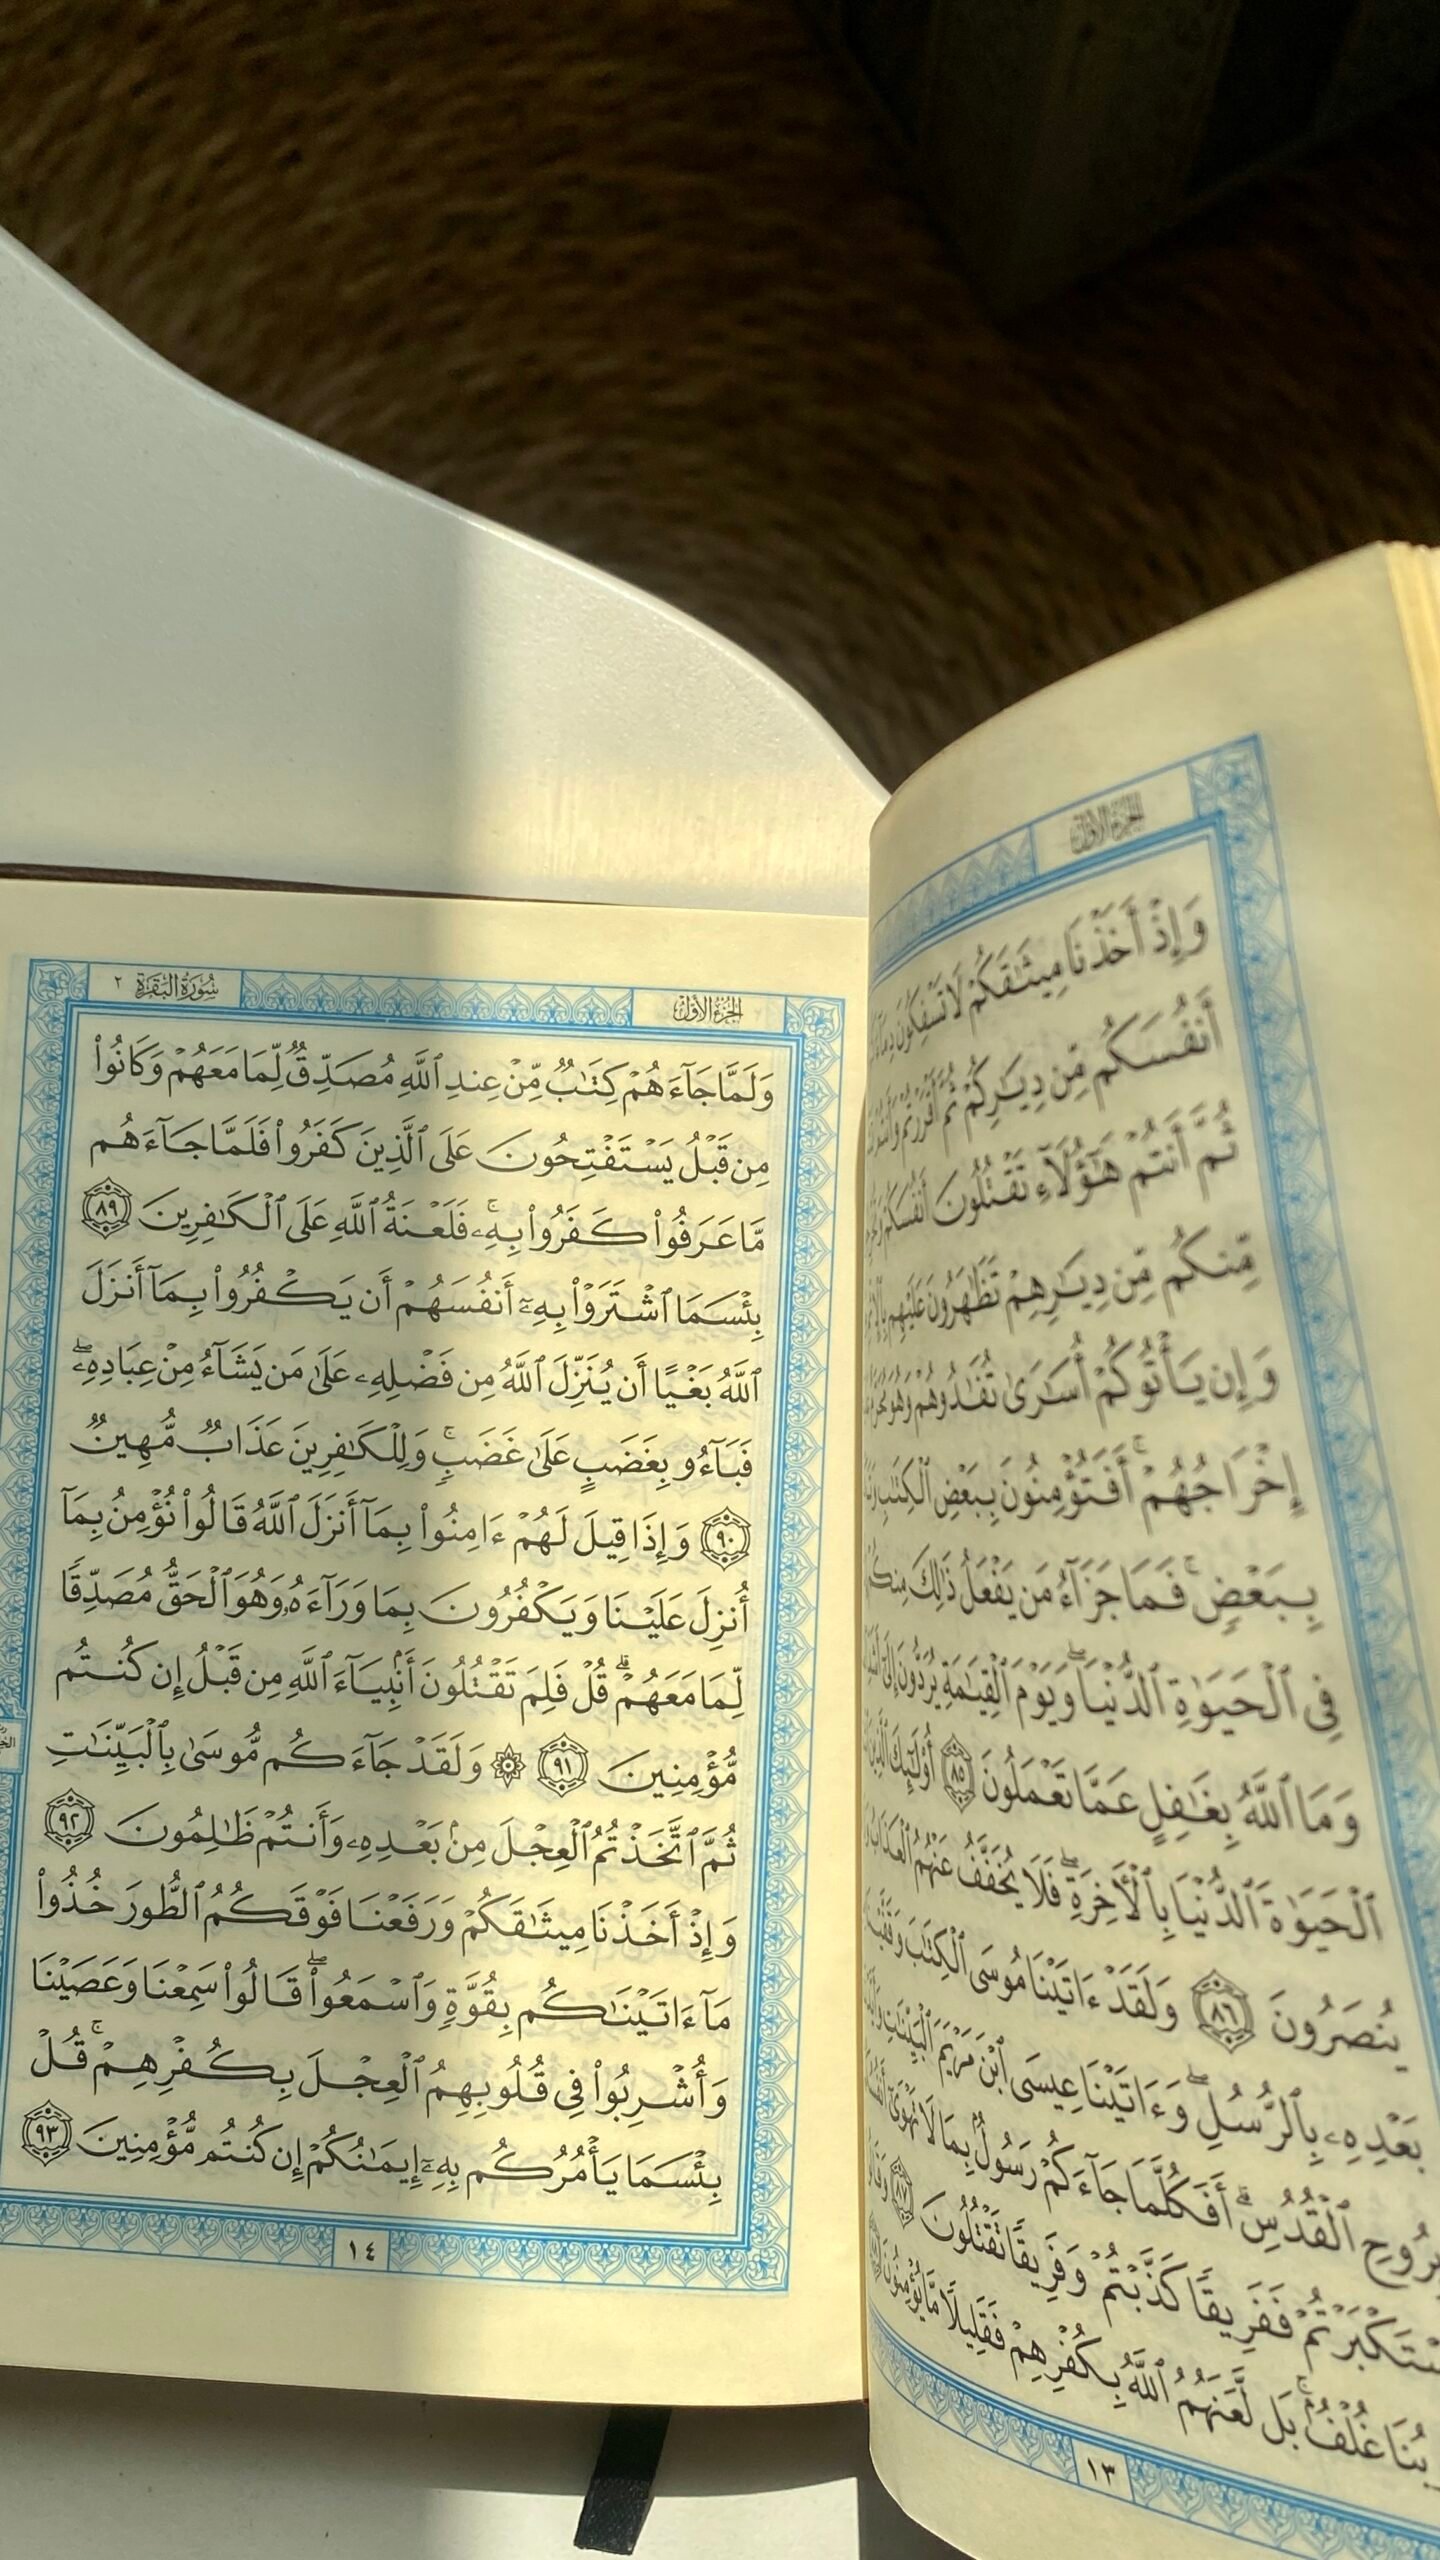 الجزء الأول
وَإِذْ أَخَذْنَا مِيثَٰقَكُمْ لَا تَسْفِكُونَ
أَنفُسَكُم مِّن دِيَٰرِكُمْ ثُمَّ أَقْرَرْتُمْ
ثُمَّ أَنتُمْ هَٰٓؤُلَآءِ تَقْتُلُونَ أَنفُسَكُمْ
مِّنكُم مِّن دِيَٰرِهِمْ تَظَٰهَرُونَ عَلَيْهِم
وَإِن يَأْتُوكُمْ أُسَٰرَىٰ تُفَٰدُوهُمْ وَهُوَ
إِخْرَاجُهُمْ ۚ أَفَتُؤْمِنُونَ بِبَعْضِ ٱلْكِتَٰبِ
بِبَعْضٍ ۚ فَمَا جَزَآءُ مَن يَفْعَلُ ذَٰلِكَ
فِى ٱلْحَيَوٰةِ ٱلدُّنْيَا ۖ وَيَوْمَ ٱلْقِيَٰمَةِ يُرَدُّونَ إِلَىٰٓ
وَمَا ٱللَّهُ بِغَٰفِلٍ عَمَّا تَعْمَلُونَ ٨٥ أُو۟لَٰٓئِكَ ٱلَّذِينَ
ٱلْحَيَوٰةَ ٱلدُّنْيَا بِٱلْأَخِرَةِ ۖ فَلَا يُخَفَّفُ عَنْهُمُ ٱلْعَذَابُ
يُنصَرُونَ ٨٦ وَلَقَدْ ءَاتَيْنَا مُوسَى ٱلْكِتَٰبَ
بَعْدِهِۦ بِٱلرُّسُلِ ۖ وَءَاتَيْنَا عِيسَى ٱبْنَ مَرْيَمَ ٱلْبَيِّنَٰتِ
بِرُوحِ ٱلْقُدُسِ ۗ أَفَكُلَّمَا جَآءَكُمْ رَسُولٌۢ بِمَا لَا تَهْوَىٰٓ
فَفَرِيقًا كَذَّبْتُمْ وَفَرِيقًا تَقْتُلُونَ ٨٧
غُلْفٌۢ ۚ بَل لَّعَنَهُمُ ٱللَّهُ بِكُفْرِهِمْ فَقَلِيلًا مَّا يُؤْمِنُونَ
١٣
الجزء الأول
سورة البقرة ٢
وَلَمَّا جَآءَهُمْ كِتَٰبٌ مِّنْ عِندِ ٱللَّهِ مُصَدِّقٌ لِّمَا مَعَهُمْ وَكَانُوا۟
مِن قَبْلُ يَسْتَفْتِحُونَ عَلَى ٱلَّذِينَ كَفَرُوا۟ فَلَمَّا جَآءَهُم
مَّا عَرَفُوا۟ كَفَرُوا۟ بِهِۦ ۚ فَلَعْنَةُ ٱللَّهِ عَلَى ٱلْكَٰفِرِينَ ٨٩
بِئْسَمَا ٱشْتَرَوْا۟ بِهِۦٓ أَنفُسَهُمْ أَن يَكْفُرُوا۟ بِمَآ أَنزَلَ
ٱللَّهُ بَغْيًا أَن يُنَزِّلَ ٱللَّهُ مِن فَضْلِهِۦ عَلَىٰ مَن يَشَآءُ مِنْ عِبَادِهِۦ ۖ
فَبَآءُو بِغَضَبٍ عَلَىٰ غَضَبٍ ۚ وَلِلْكَٰفِرِينَ عَذَابٌ مُّهِينٌ
٩٠ وَإِذَا قِيلَ لَهُمْ ءَامِنُوا۟ بِمَآ أَنزَلَ ٱللَّهُ قَالُوا۟ نُؤْمِنُ بِمَآ
أُنزِلَ عَلَيْنَا وَيَكْفُرُونَ بِمَا وَرَآءَهُۥ وَهُوَ ٱلْحَقُّ مُصَدِّقًا
لِّمَا مَعَهُمْ ۗ قُلْ فَلِمَ تَقْتُلُونَ أَنۢبِيَآءَ ٱللَّهِ مِن قَبْلُ إِن كُنتُم
مُّؤْمِنِينَ ٩١ ۞ وَلَقَدْ جَآءَكُم مُّوسَىٰ بِٱلْبَيِّنَٰتِ
ثُمَّ ٱتَّخَذْتُمُ ٱلْعِجْلَ مِنۢ بَعْدِهِۦ وَأَنتُمْ ظَٰلِمُونَ ٩٢
وَإِذْ أَخَذْنَا مِيثَٰقَكُمْ وَرَفَعْنَا فَوْقَكُمُ ٱلطُّورَ خُذُوا۟
مَآ ءَاتَيْنَٰكُم بِقُوَّةٍ وَٱسْمَعُوا۟ ۖ قَالُوا۟ سَمِعْنَا وَعَصَيْنَا
وَأُشْرِبُوا۟ فِى قُلُوبِهِمُ ٱلْعِجْلَ بِكُفْرِهِمْ ۚ قُلْ
بِئْسَمَا يَأْمُرُكُم بِهِۦٓ إِيمَٰنُكُمْ إِن كُنتُم مُّؤْمِنِينَ ٩٣
١٤